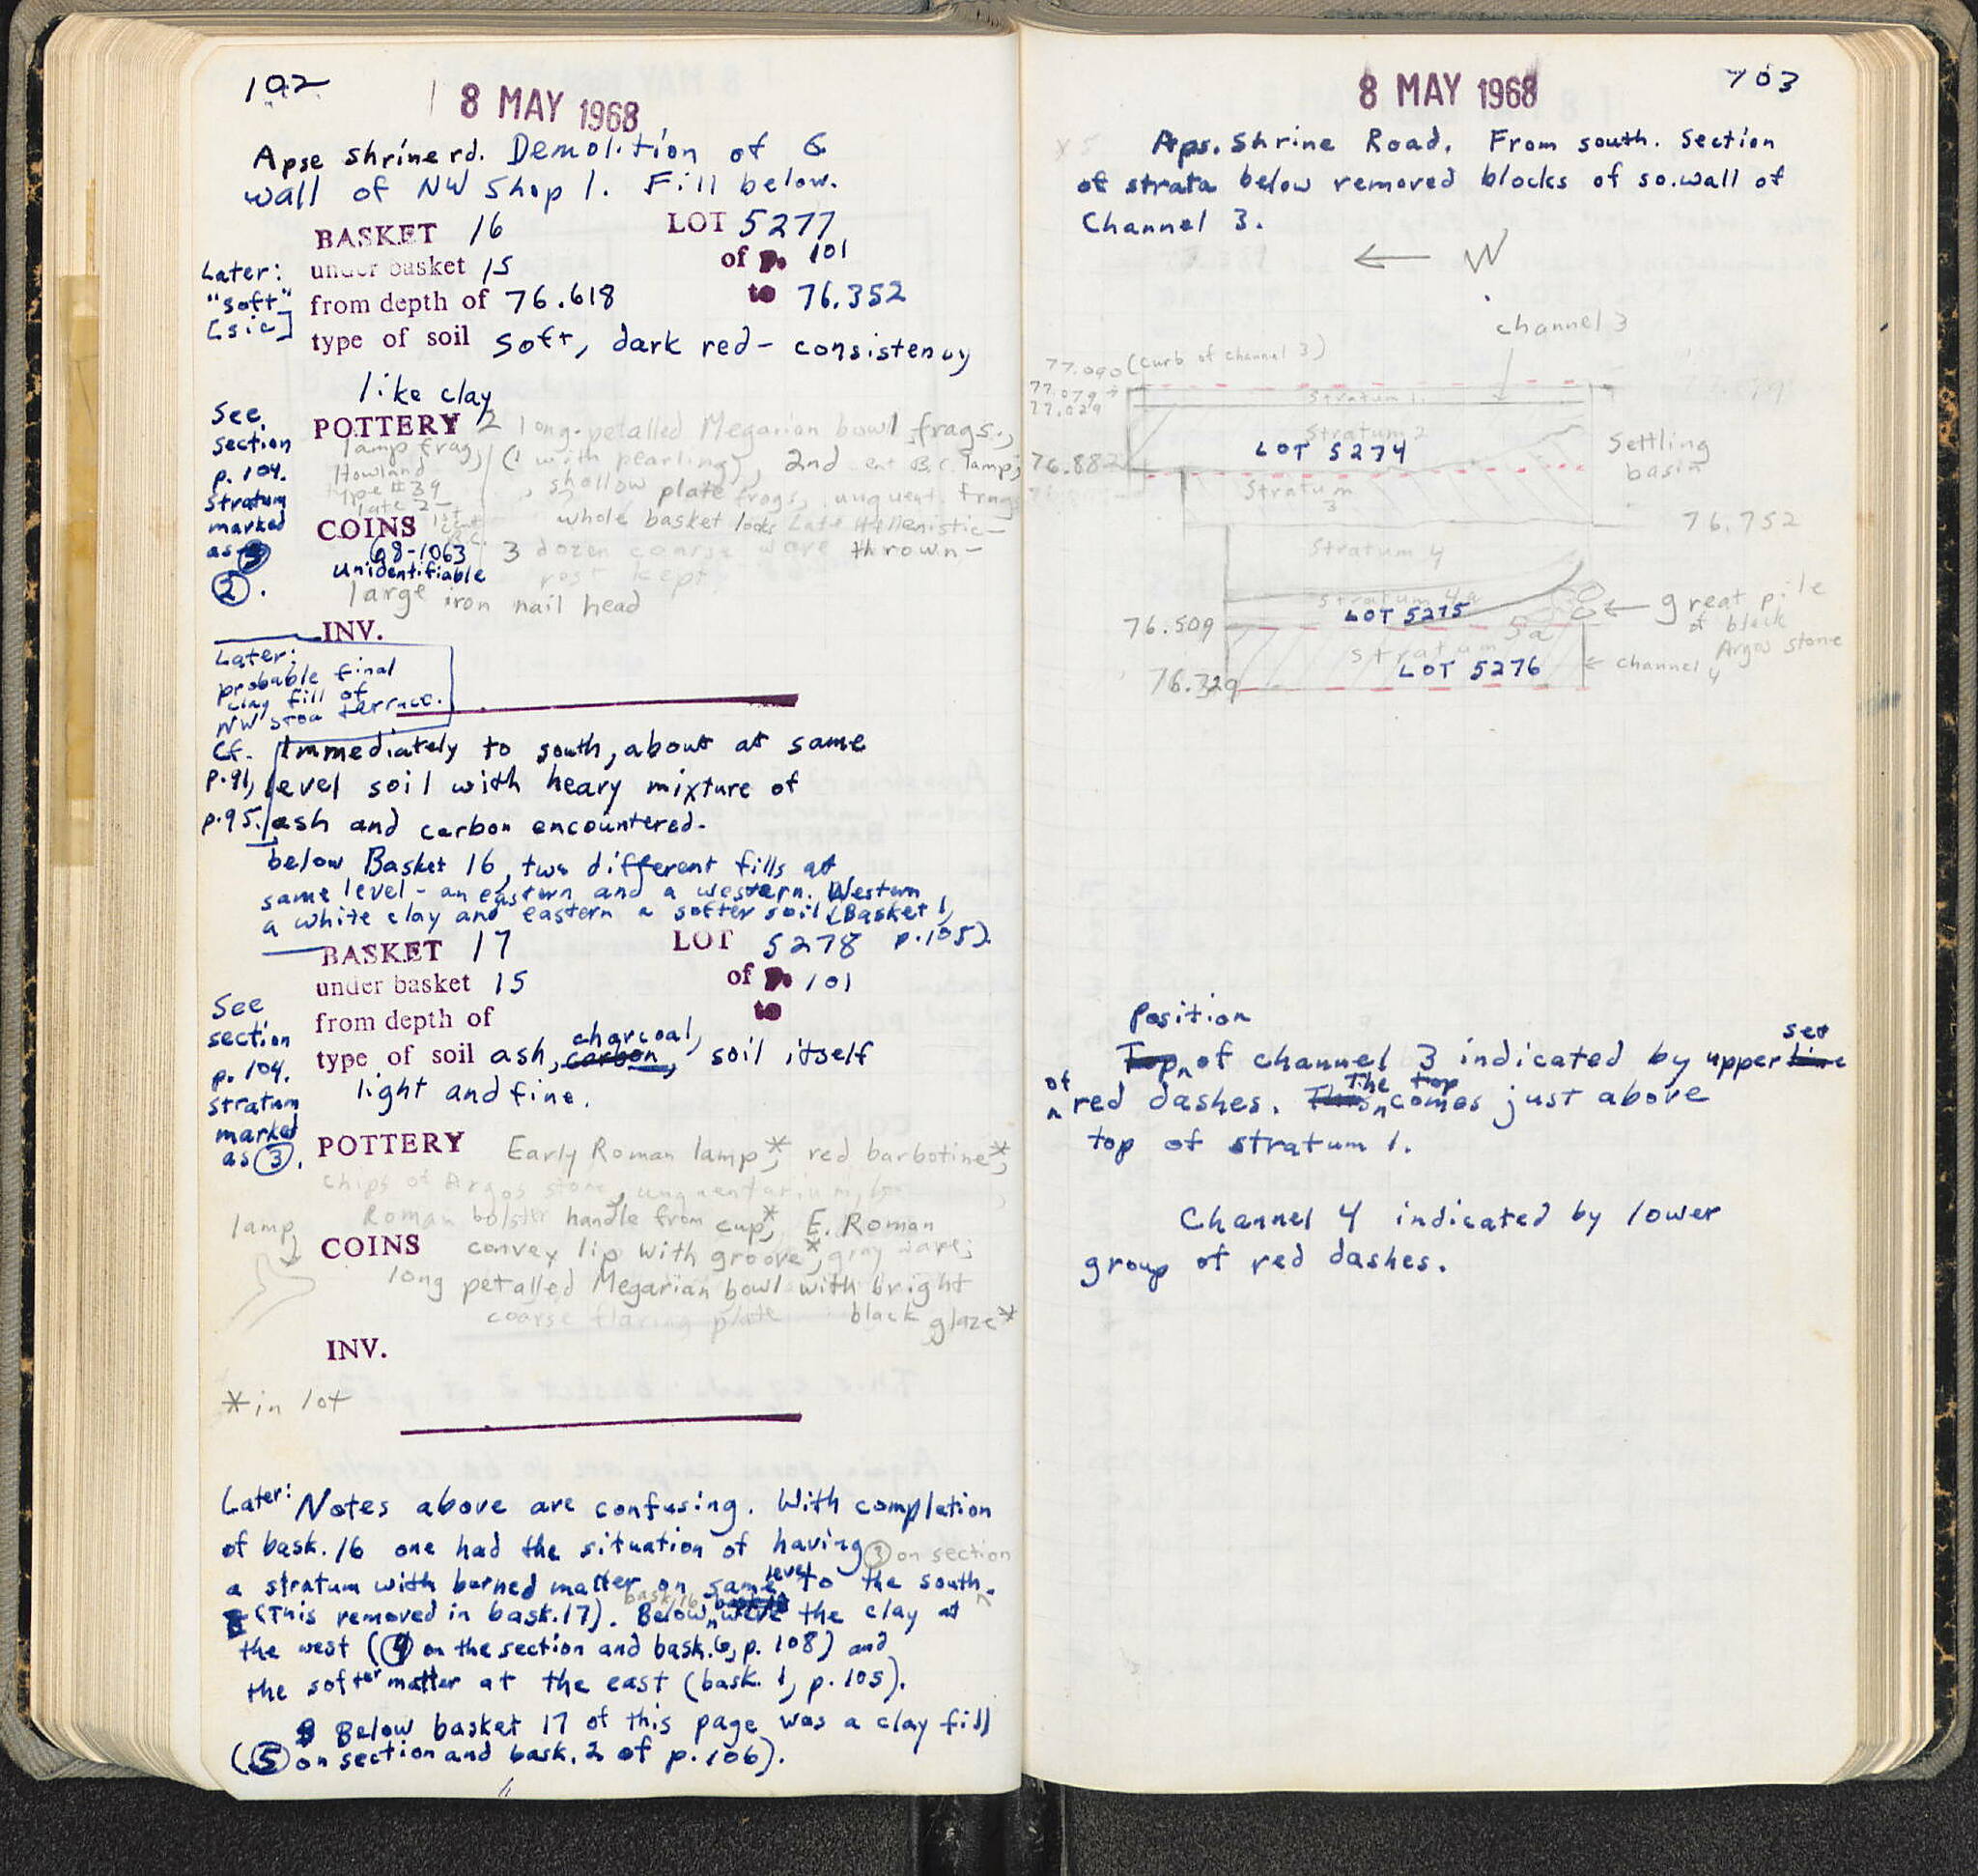 102
8 MAY 1968
Apse shrine rd. Demolition of G
wall of NW Shop 1. Fill below.
BASKET 16 LOT 5277
under basket 15 of p. 101
from depth of 76.618 to 76.352
type of soil soft, dark red - consistency
like clay
Later:
"soft"
[sic]
See
section
p. 104.
Stratum
marked
as 3
2.
POTTERY 2 long-petalled Megarian bowl frags.,
(1 with pearling), 2nd cent B.C. lamp;
shallow plate frags, unguent. frag
whole basket looks Late Hellenistic -
3 dozen coarse ware thrown -
rest kept
lamp frag,
Howland
type #39
late 2-
1st
cent
B.C.
COINS
68-1063
unidentifiable
large iron nail head
INV.
Later:
probable final
clay fill of
NW stoa terrace.
Cf.
p.91,
p.95.
Immediately to south, about at same
level soil with heavy mixture of
ash and carbon encountered.
below Basket 16, two different fills at
same level - an eastern and a western. Western
a white clay and eastern a softer soil (Basket 1,
p.105).
BASKET 17 LOT 5278
under basket 15 of p. 101
from depth of to
type of soil ash, carbon, charcoal, soil itself
light and fine.
See
section
p. 104.
stratum
marked
as 3.
POTTERY Early Roman lamp*; red barbotine*;
chips of Argos stone, unguentarium,
Roman bolster handle from cup*; E. Roman
COINS convex lip with groove*, gray ware;
long petalled Megarian bowl with bright
black glaze*
coarse flaring plate
lamp
INV.
*in lot
Later: Notes above are confusing. With completion
of bask. 16 one had the situation of having
a stratum with burned matter on same level to the south. 3 on section
(This removed in bask. 17). Below bask. 16 were the clay at
the west (4 on the section and bask. 6, p. 108) and
the softer matter at the east (bask. 1, p. 105).
Below basket 17 of this page was a clay fill
(5 on section and bask. 2 of p. 106).
8 MAY 1968
103
Aps. Shrine Road. From south. Section
of strata below removed blocks of so. wall of
Channel 3.
← N
channel 3
77.090 (curb of channel 3)
77.079
77.029
Stratum 1
Stratum 2
LOT 5274
76.882
Settling
basin
Stratum
3
76.752
Stratum 4
stratum 4a
LOT 5275
great pile
of black
Argos stone
76.509
5a
stratum
LOT 5276
channel 4
76.329
Top Position of channel 3 indicated by upper line set
of red dashes. This The top comes just above
top of stratum 1.
Channel 4 indicated by lower
group of red dashes.